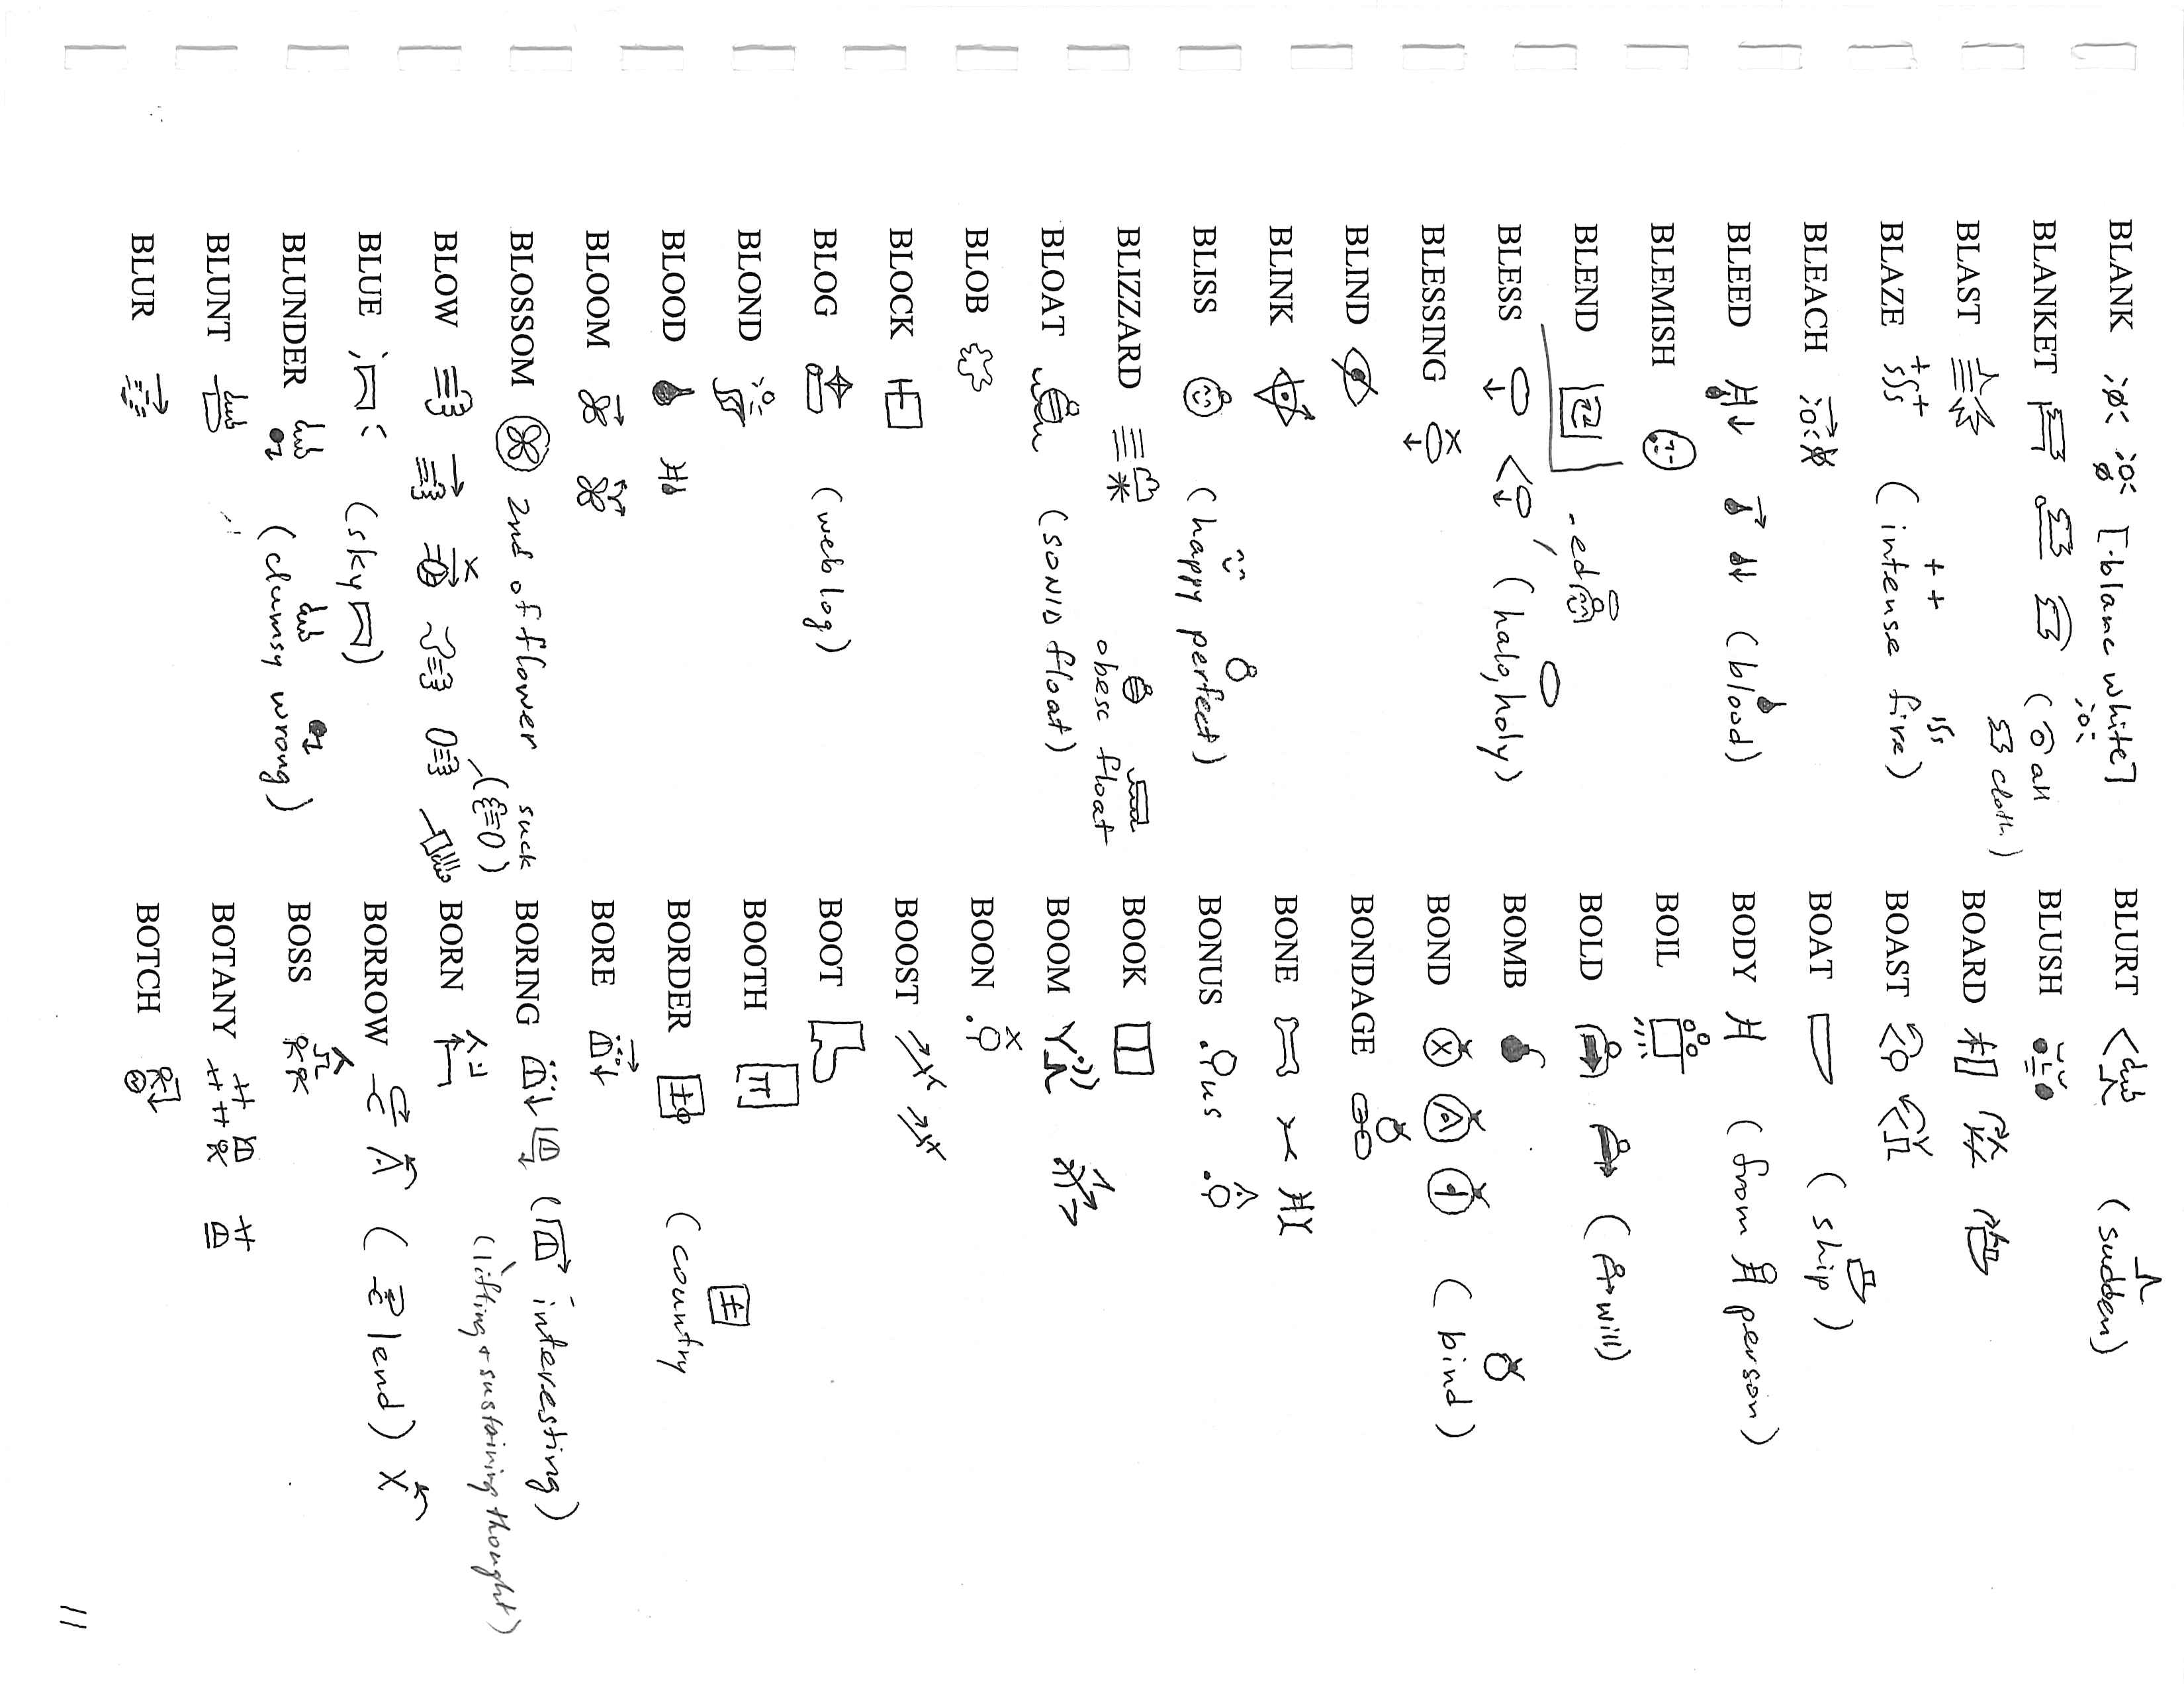 BLANK [·blame white]
BLANKET (all cloth)
BLAST
BLAZE (intense fire)
BLEACH
BLEED (blood)
BLEMISH
BLEND
-ed
BLESS (halo, holy)
BLESSING
BLIND
BLINK
BLISS (happy perfect)
BLIZZARD
obese float
BLOAT (float)
BLOB
BLOCK
BLOG (web log)
BLOND
BLOOD
BLOOM
BLOSSOM 2nd of flower
suck
BLOW
BLUE (sky)
BLUNDER (clumsy wrong)
BLUNT
BLUR
BLURT (sudden)
BLUSH
BOARD
BOAST
BOAT (ship)
BODY (from person)
BOIL
BOLD (will)
BOMB
BOND (bind)
BONDAGE
BONE
BONUS us
BOOK
BOOM
BOON
BOOST
BOOT
BOOTH
BORDER (country
BORE
BORING (interesting)
(lifting + sustaining thought)
BORN
BORROW (lend)
BOSS
BOTANY
BOTCH
11